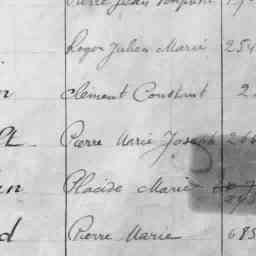 Pierre Jean
Roger Julien Marie 254
Clement Constant 2
Pierre Marie Joseph 266
Placide Marie
Pierre Marie 685